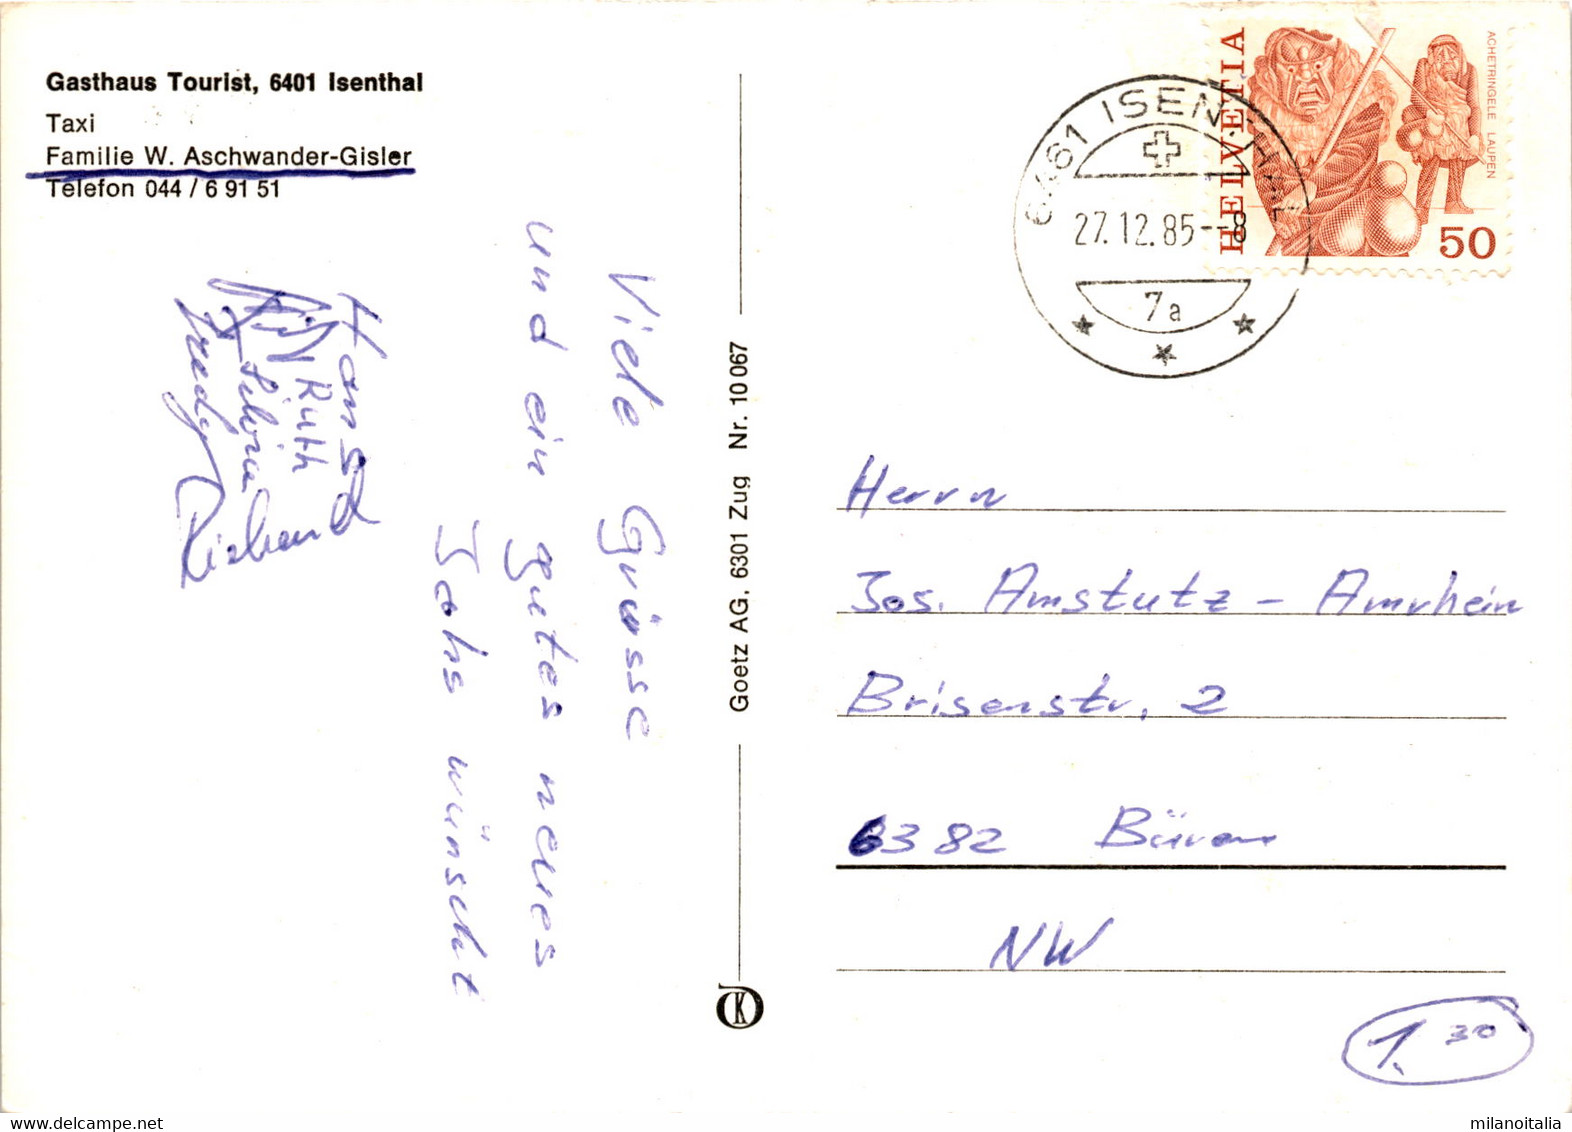 Gasthaus Tourist, 6401 Isenthal
Taxi
Familie W. Aschwander-Gisler
Telefon 044 / 6 91 51
Viele Grüsse
und ein gutes neues
Jahr wünscht
Hans
Ruth
Silvia
Fredy
Richard
Goetz AG, 6301 Zug Nr. 10 067
K
6461 ISENTHAL
27.12.85--8
7a
HELVETIA
ACHETRINGELE LAUPEN
50
Herrn
Jos. Amstutz - Amrhein
Brisenstr. 2
6382 Büren
NW
1.30
milanoitalia